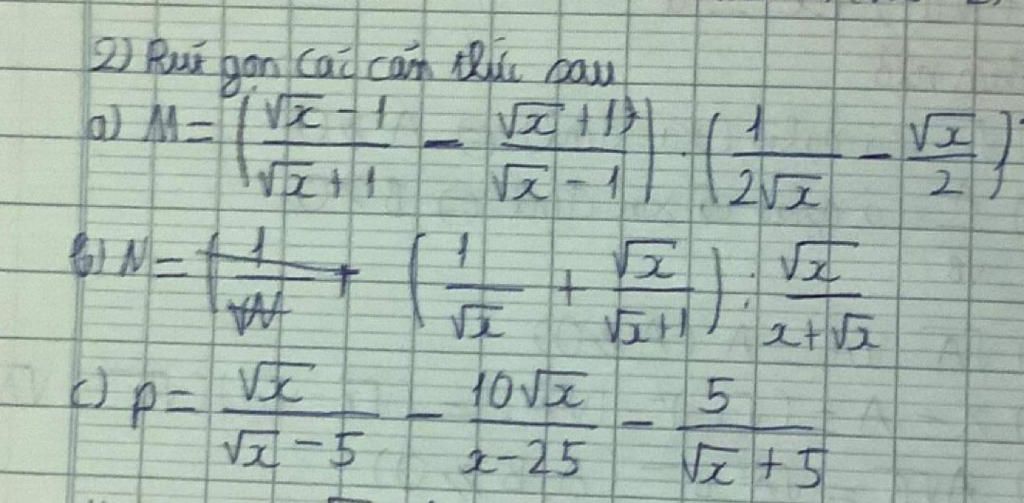 2) Rút gọn các căn thức sau
a) M = (√x - 1 / √x + 1 - √x + 1 / √x - 1) . (1 / 2√x - √x / 2)²
b) N = (1 / √x + √x / √x+1) : √x / x+√x
c) P = √x / √x - 5 - 10√x / x-25 - 5 / √x + 5